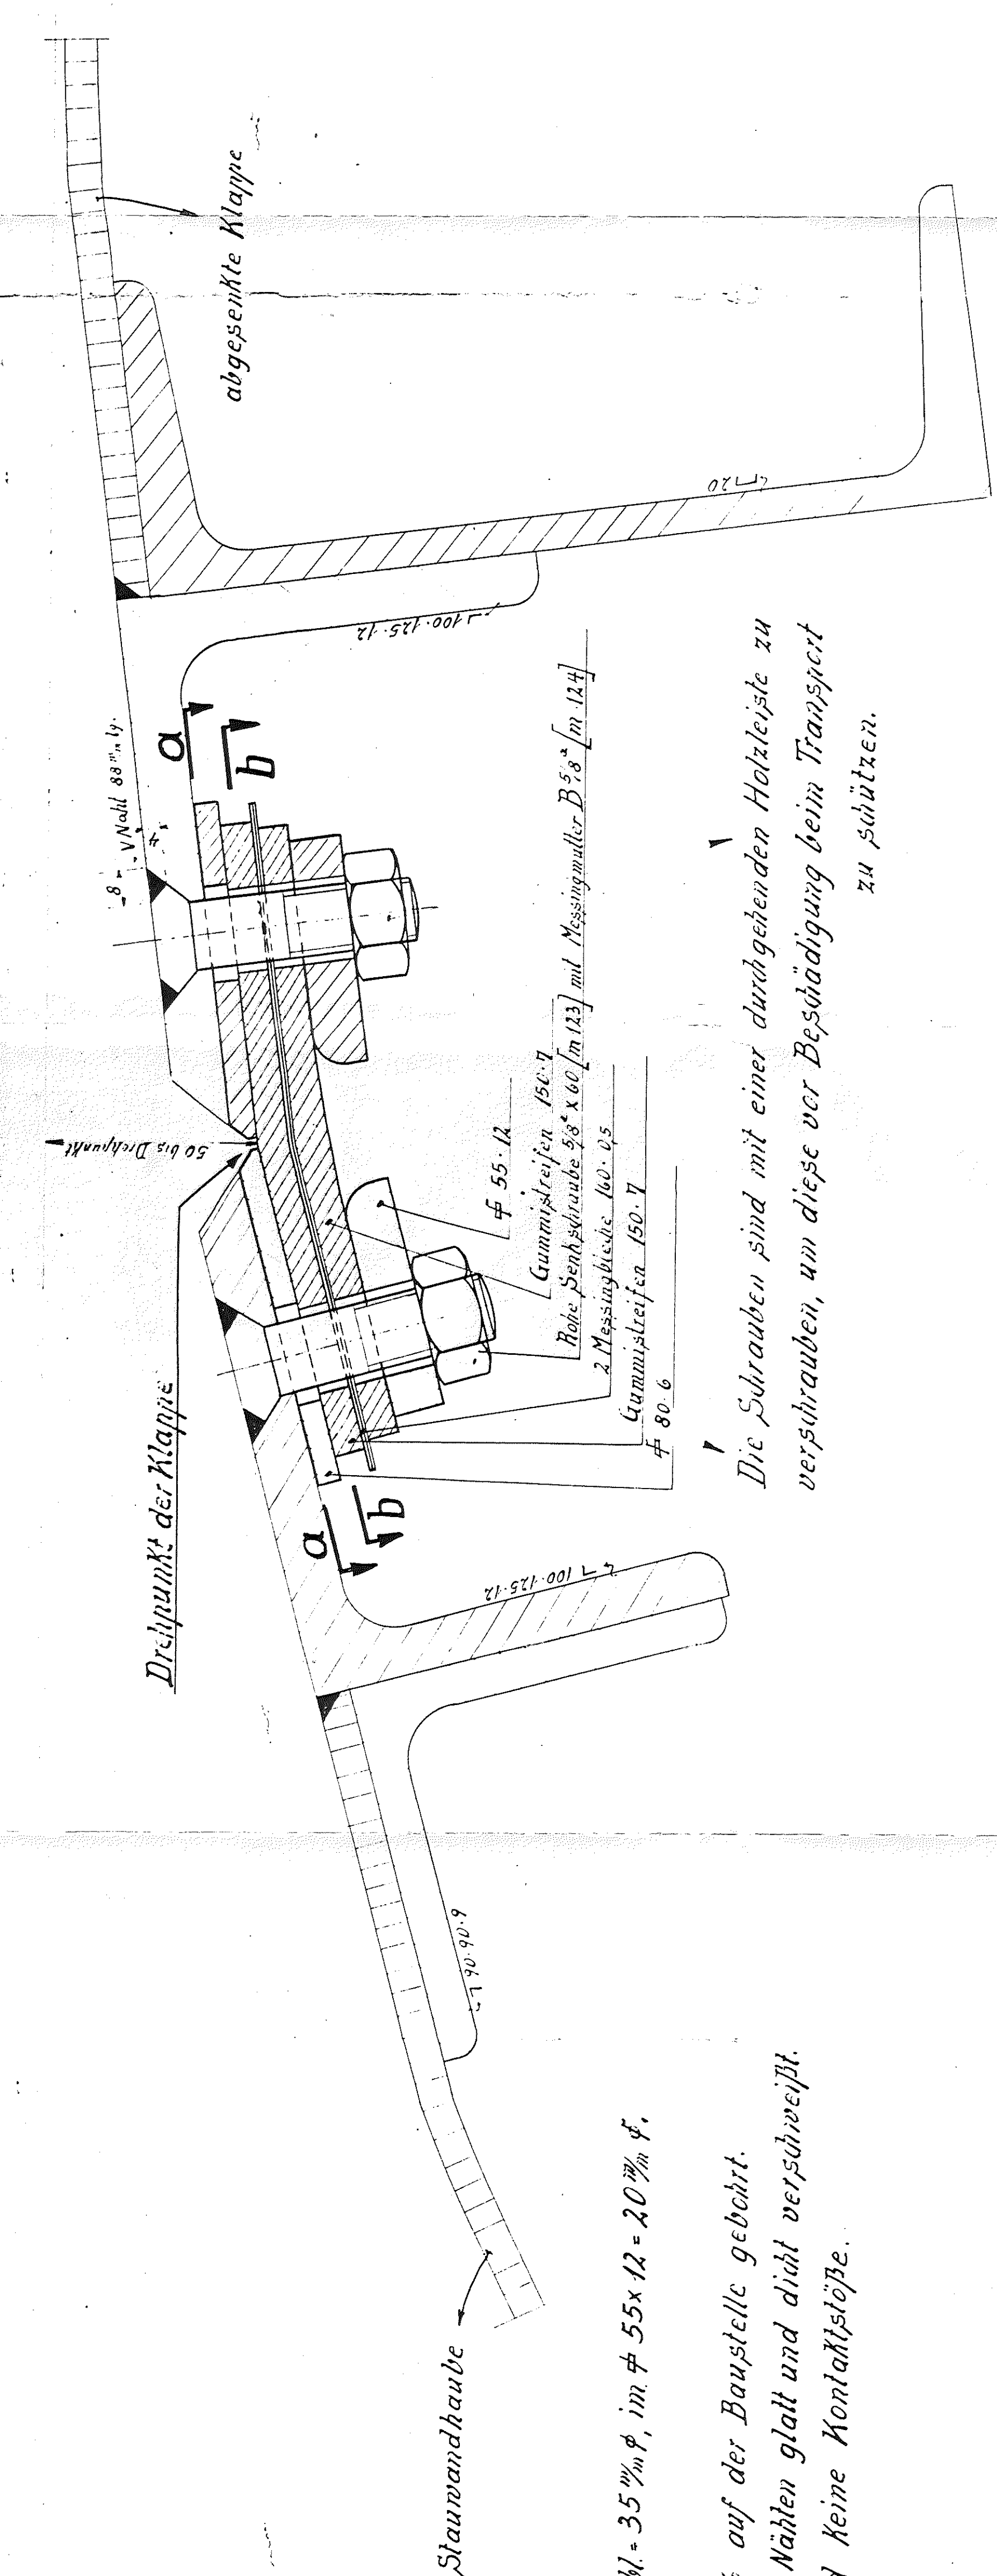 abgesenkte Klappe
⊏ 20
∟ 100·125·12
8 V Naht 88 m/m lg.
4
a
b
50 bis Drehpunkt
Drehpunkt der Klappe
⌀ 55·12
Gummistreifen 150·7
Rohe Senkschraube 5/8" x 60 [m 123] mit Messingmutter B 5/8" [m 124]
2 Messingbleche 160·0,5
Gummistreifen 150·7
80·6
a
b
Die Schrauben sind mit einer durchgehenden Holzleiste zu
verschrauben, um diese vor Beschädigung beim Transport
zu schützen.
∟ 100·125·12
∟ 90·90·9
Stauwandhaube
= 35 m/m ϕ, im 55x12 = 20 m/m ϕ.
auf der Baustelle gebohrt.
Nähten glatt und dicht verschweißt.
keine Kontaktstöße.